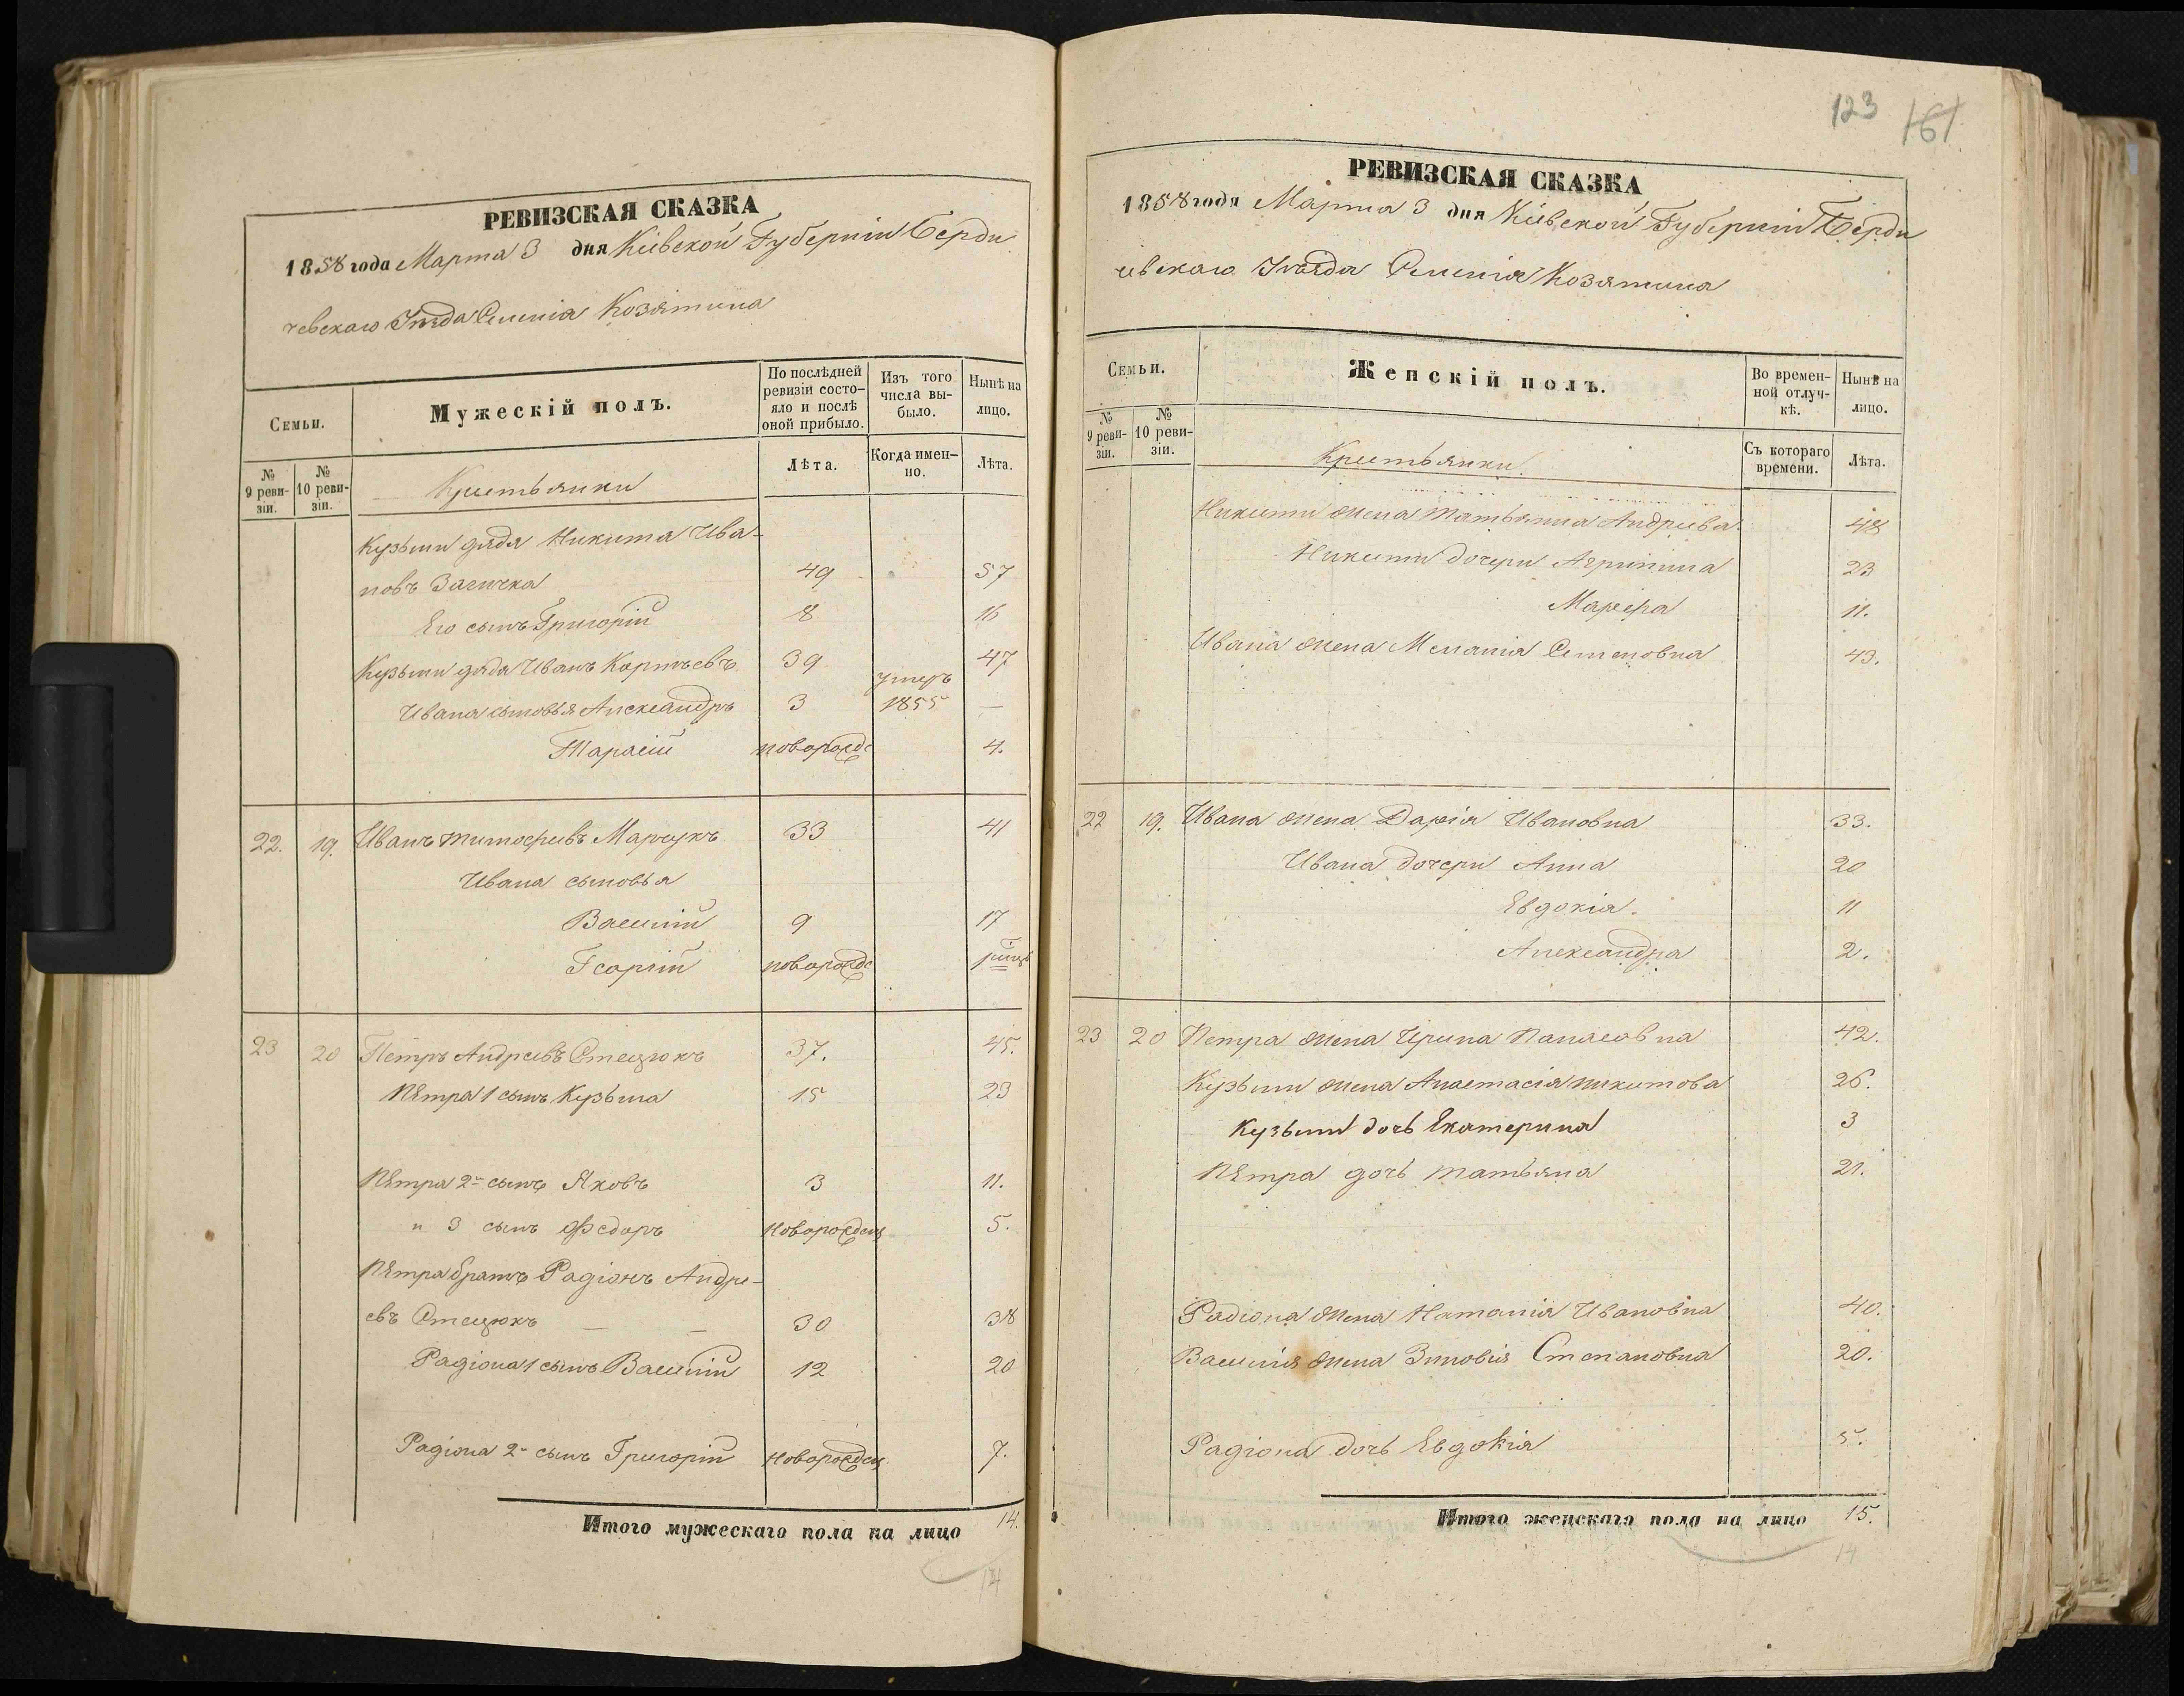 РЕВИЗСКАЯ СКАЗКА
1858 года Марта 3 дня Кіевской Губерніи Берди
чевскаго Уѣзда Селенія Козятина
Семьи.
Мужескій полъ.
По послѣдней
ревизіи состо-
яло и послѣ
оной прибыло.
Изъ того
числа вы-
было.
Нынѣ на
лицо.
№
9 реви-
зіи.
№
10 реви-
зіи.
Крестьянки
Лѣта.
Когда имен-
но.
Лѣта.
Кузьмы дядя Никита Ива-
новъ 49 57
Его сынъ Григорій 8 16
Кузьмы дядя Иванъ 39 47
умеръ
Ивана сыновья Александръ 3 1855 —
Тарасій новорожд 4.
22. 19. Иванъ Тимофеевъ Марчукъ 33 41
Ивана сыновья
Василій 9 17
Георгій новорожд
23 20 Петръ Андреевъ Стецюкъ 37. 45.
Пѣтра 1 сынъ Кузьма 15 23
Пѣтра 2й сынъ Яковъ 3 11.
" 3 сынъ Федоръ Новорожден 5.
Пѣтра братъ Радіонъ Андре-
евъ Стецюкъ — — 30 38
Радіона 1 сынъ Василій 12 20
Радіона 2й сынъ Григорій Новорожден 7.
Итого мужескаго пола на лицо 14.
14
123 161
РЕВИЗСКАЯ СКАЗКА
1858 года Марта 3 дня Кіевской Губерніи Берди
чевскаго Уѣзда Селенія Козятина
Семьи.
Женскій полъ.
Во времен-
ной отлуч-
кѣ.
Нынѣ на
лицо.
№
9 реви-
зіи.
№
10 реви-
зіи.
Крестьянки
Съ котораго
времени.
Лѣта.
Никиты жена Татьянна Андреева 48
Никиты дочери Агрипина 23
Марфа 11.
Ивана жена Меланія Семеновна 43.
22 19. Ивана жена Дарія Ивановна 33.
Ивана дочери Анна 20
Евдокія. 11
Александра 2.
23 20 Петра жена Ирина Панасовна 42.
Кузьмы жена Анастасія Никитова 26.
Кузьмы дочь Екатерина 3
Пѣтра дочь Татьяна 21.
Радіона жена Наталія Ивановна 40.
Василія жена Зиновія Степановна 20.
Радіона дочь Евдокія 5.
Итого женскаго пола на лицо 15.
14